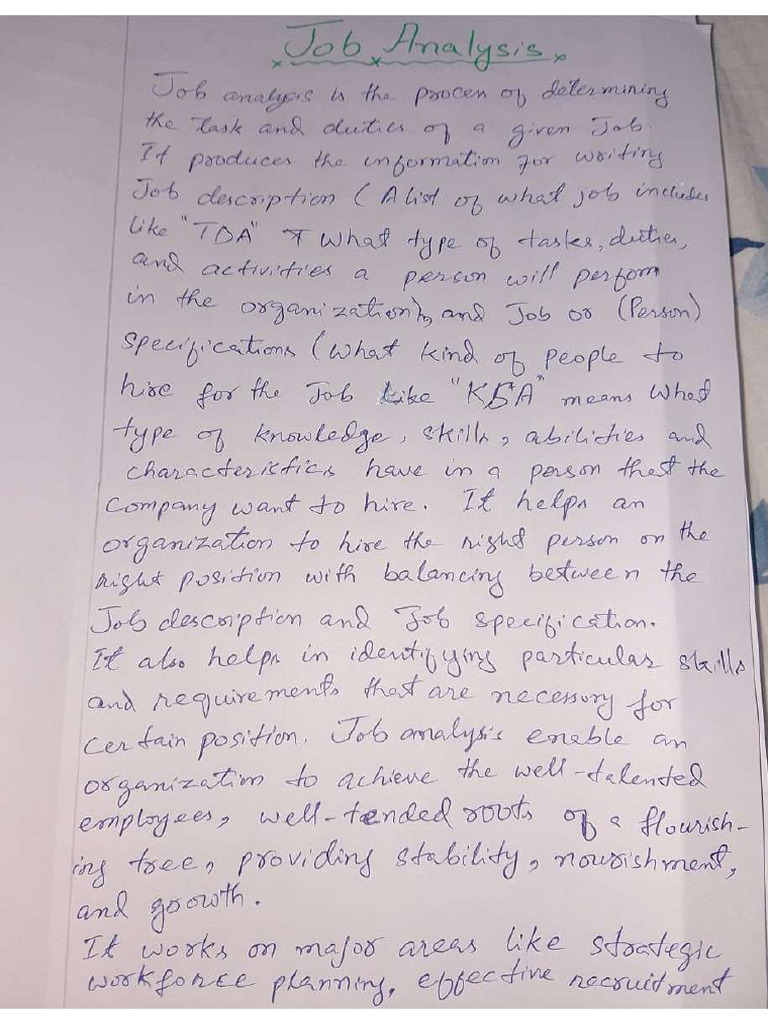 Job Analysis
Job analysis is the process of determining
the Task and duties of a given Job.
It produces the information for writing
Job description (A list of what job includes
like "TDA" & What type of tasks, duties,
and activities a person will perform
in the organization), and Job or (Person)
specifications (what kind of people to
hire for the Job like "KSA" means what
type of knowledge, skills, abilities and
characteristics have in a person that the
company want to hire. It helps an
organization to hire the right person on the
right position with balancing between the
Job description and Job specification.
It also helps in identifying particular skills
and requirements that are necessary for
certain position. Job analysis enable an
organization to achieve the well-talented
employees, well-tended roots of a flourish-
ing tree, providing stability, nourishment,
and growth.
It works on major areas like strategic
workforce planning, effective recruitment